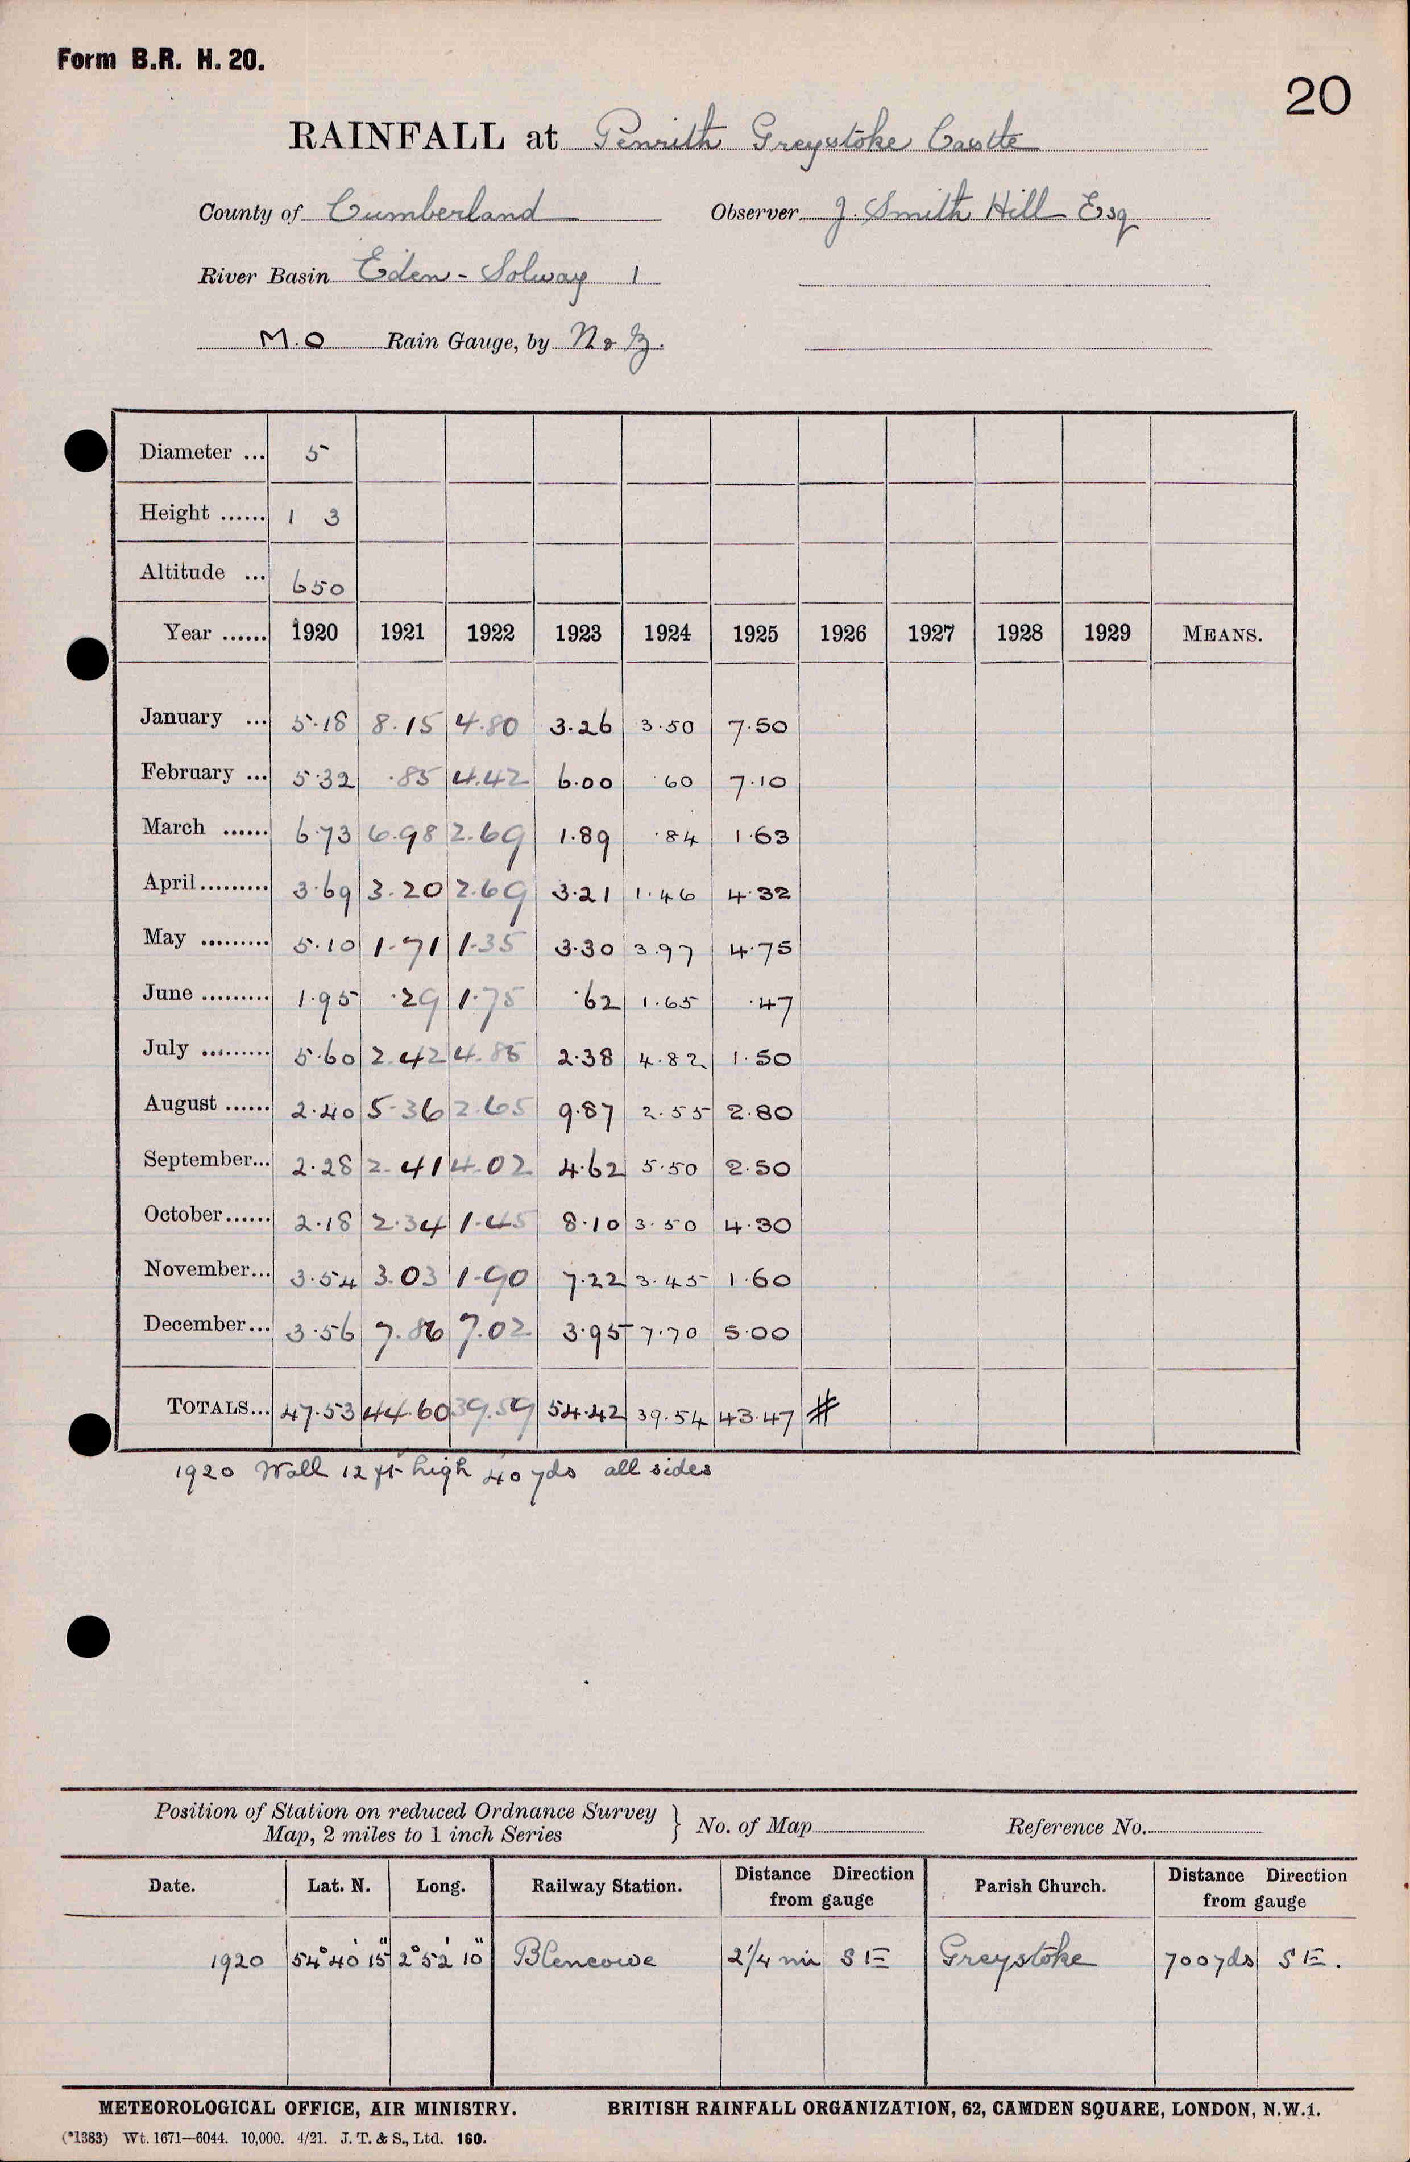 Form B.R. H. 20.
20
RAINFALL at Penrith Greystoke Castle
County of Cumberland Observer J. Smith Hill Esq
River Basin Eden - Solway 1
M.O Rain Gauge, by N & Z.
Diameter ... 5
Height ...... 1 3
Altitude ... 650
Year ...... 1920 1921 1922 1923 1924 1925 1926 1927 1928 1929 MEANS.
January ... 5.18 8.15 4.80 3.26 3.50 7.50
February ... 5.32 .85 4.42 6.00 .60 7.10
March ...... 6.73 6.98 2.69 1.89 .84 1.63
April......... 3.69 3.20 2.69 3.21 1.46 4.32
May ......... 5.10 1.71 1.35 3.30 3.97 4.75
June ......... 1.95 .29 1.75 .62 1.65 .47
July ......... 5.60 2.42 4.85 2.38 4.82 1.50
August ...... 2.40 5.36 2.65 9.87 2.55 2.80
September... 2.28 2.41 4.02 4.62 5.50 2.50
October...... 2.18 2.34 1.45 8.10 3.50 4.30
November... 3.54 3.03 1.90 7.22 3.45 1.60
December... 3.56 7.86 7.02 3.95 7.70 5.00
TOTALS... 47.53 44.60 39.59 54.42 39.54 43.47 #
1920 Wall 12 ft high 40 yds all sides
Position of Station on reduced Ordnance Survey Map, 2 miles to 1 inch Series } No. of Map Reference No.
Date. Lat. N. Long. Railway Station. Distance Direction from gauge Parish Church. Distance Direction from gauge
1920 54° 40' 15" 2° 52' 10" Blencowe 2 1/4 mi SE Greystoke 700 yds SE.
METEOROLOGICAL OFFICE, AIR MINISTRY. BRITISH RAINFALL ORGANIZATION, 62, CAMDEN SQUARE, LONDON, N.W.1.
(*1383) Wt. 1671—6044. 10,000. 4/21. J. T. & S., Ltd. 160.